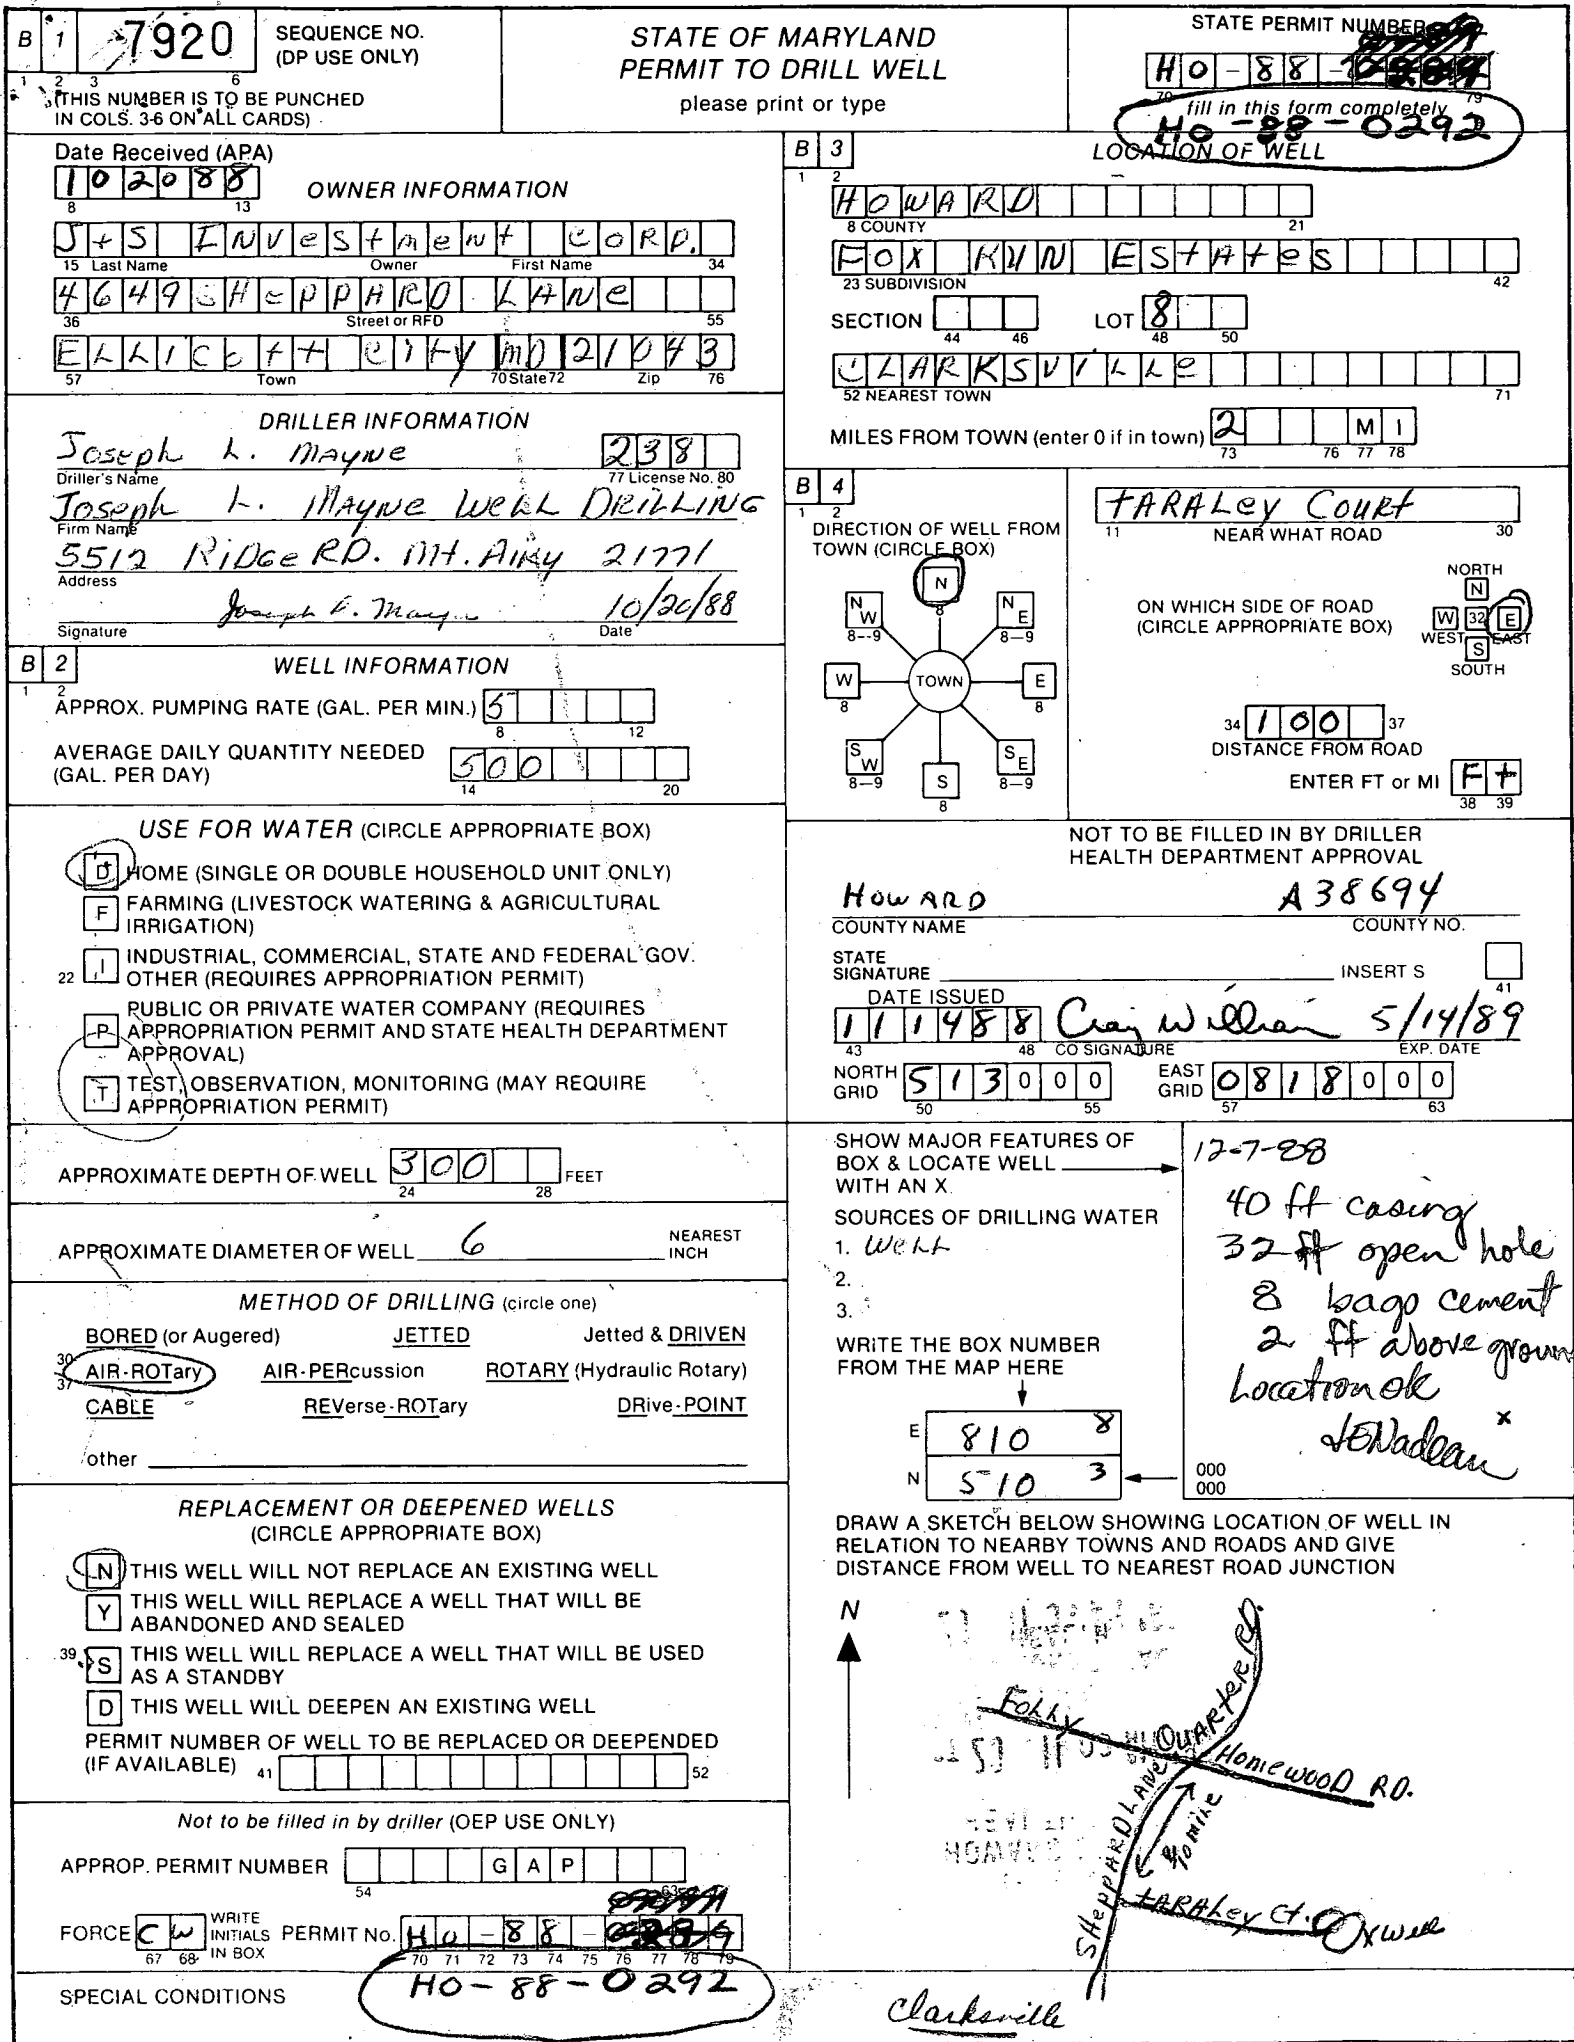 B 1 7920 SEQUENCE NO. (DP USE ONLY)
1 2 3 6
(THIS NUMBER IS TO BE PUNCHED
IN COLS. 3-6 ON ALL CARDS)
STATE OF MARYLAND
PERMIT TO DRILL WELL
please print or type
STATE PERMIT NUMBER
HO-88-
70 79
fill in this form completely
HO-88-0292
Date Received (APA)
102088
8 13
OWNER INFORMATION
J+S INVeStmeNt CORP.
15 Last Name Owner First Name 34
4649 SHePPARD LANe
36 Street or RFD 55
ELLICott City MD 21043
57 Town 70 State 72 Zip 76
DRILLER INFORMATION
Joseph L. MAYNe 238
Driller's Name 77 License No. 80
Joseph L. MAYNe WeLL DRILLING
Firm Name
5512 RIDGe RD. Mt. AIRy 21771
Address
Joseph L. Mayne 10/20/88
Signature Date
B 2 WELL INFORMATION
1 2
APPROX. PUMPING RATE (GAL. PER MIN.) 5
8 12
AVERAGE DAILY QUANTITY NEEDED
(GAL. PER DAY) 500
14 20
USE FOR WATER (CIRCLE APPROPRIATE BOX)
D HOME (SINGLE OR DOUBLE HOUSEHOLD UNIT ONLY)
F FARMING (LIVESTOCK WATERING & AGRICULTURAL
IRRIGATION)
22 I INDUSTRIAL, COMMERCIAL, STATE AND FEDERAL GOV.
OTHER (REQUIRES APPROPRIATION PERMIT)
P PUBLIC OR PRIVATE WATER COMPANY (REQUIRES
APPROPRIATION PERMIT AND STATE HEALTH DEPARTMENT
APPROVAL)
T TEST, OBSERVATION, MONITORING (MAY REQUIRE
APPROPRIATION PERMIT)
APPROXIMATE DEPTH OF WELL 300 FEET
24 28
APPROXIMATE DIAMETER OF WELL 6 NEAREST INCH
METHOD OF DRILLING (circle one)
BORED (or Augered) JETTED Jetted & DRIVEN
30 37 AIR-ROTary AIR-PERcussion ROTARY (Hydraulic Rotary)
CABLE REVerse-ROTary DRive-POINT
other
REPLACEMENT OR DEEPENED WELLS
(CIRCLE APPROPRIATE BOX)
N THIS WELL WILL NOT REPLACE AN EXISTING WELL
Y THIS WELL WILL REPLACE A WELL THAT WILL BE
ABANDONED AND SEALED
39 S THIS WELL WILL REPLACE A WELL THAT WILL BE USED
AS A STANDBY
D THIS WELL WILL DEEPEN AN EXISTING WELL
PERMIT NUMBER OF WELL TO BE REPLACED OR DEEPENED
(IF AVAILABLE) 41 52
Not to be filled in by driller (OEP USE ONLY)
APPROP. PERMIT NUMBER GAP
54 63
FORCE CW WRITE INITIALS IN BOX PERMIT No. HO-88-
67 68 70 71 72 73 74 75 76 77 78 79
HO-88-0292
SPECIAL CONDITIONS
B 3 LOCATION OF WELL
1 2
HOWARD
8 COUNTY 21
FOX RUN EStAteS
23 SUBDIVISION 42
SECTION LOT 8
44 46 48 50
CLARKSVILLe
52 NEAREST TOWN 71
MILES FROM TOWN (enter 0 if in town) 2 MI
73 76 77 78
B 4
1 2
DIRECTION OF WELL FROM
TOWN (CIRCLE BOX)
N 8
NW 8-9 NE 8-9
W 8 TOWN E 8
SW 8-9 SE 8-9
S 8
tARALey COURt
11 NEAR WHAT ROAD 30
ON WHICH SIDE OF ROAD
(CIRCLE APPROPRIATE BOX)
NORTH
N
W 32 E
WEST EAST
S
SOUTH
34 100 37
DISTANCE FROM ROAD
ENTER FT or MI Ft
38 39
NOT TO BE FILLED IN BY DRILLER
HEALTH DEPARTMENT APPROVAL
HOWARD A38694
COUNTY NAME COUNTY NO.
STATE
SIGNATURE INSERT S
41
DATE ISSUED
111488 Craig William 5/14/89
43 48 CO SIGNATURE EXP. DATE
NORTH GRID 513000 EAST GRID 0818000
50 55 57 63
SHOW MAJOR FEATURES OF
BOX & LOCATE WELL
WITH AN X.
SOURCES OF DRILLING WATER
1. WeLL
2.
3.
WRITE THE BOX NUMBER
FROM THE MAP HERE
E 810 8
N 510 3
12-7-88
40 ft casing
32 ft open hole
8 bags cement
2 ft above groun
Location ok
x
JENadeau
000
000
DRAW A SKETCH BELOW SHOWING LOCATION OF WELL IN
RELATION TO NEARBY TOWNS AND ROADS AND GIVE
DISTANCE FROM WELL TO NEAREST ROAD JUNCTION
N
FoLLy QUARteR RD.
HomewooD RD.
SHePPARD LANe
/10 MILe
tARALey Ct. X well
Clarksville